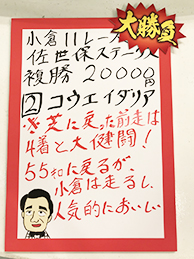 大勝負
小倉11レース
佐世保ステークス
複勝20000円
②コウエイダリア
※芝に戻った前走は
4着と大健闘!
55㌔に戻るが、
小倉は走るし、
人気的においしい